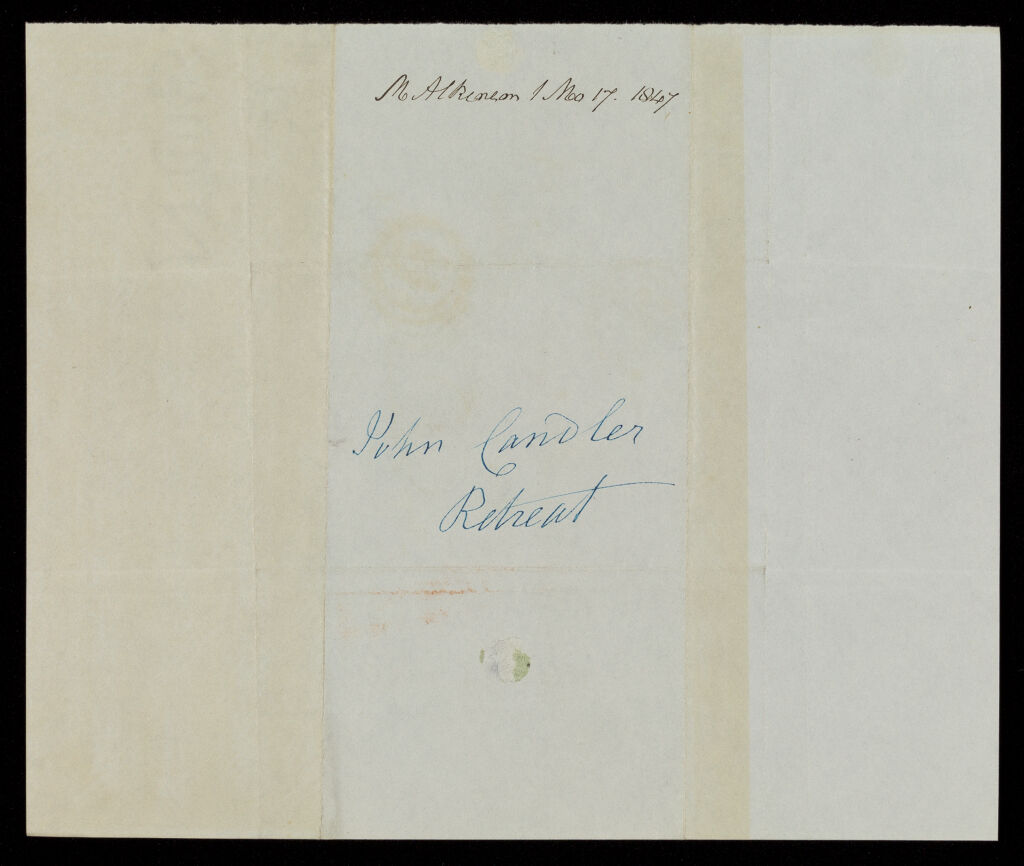 M Atkinson 1 Mo 17. 1847
John Candler
Retreat